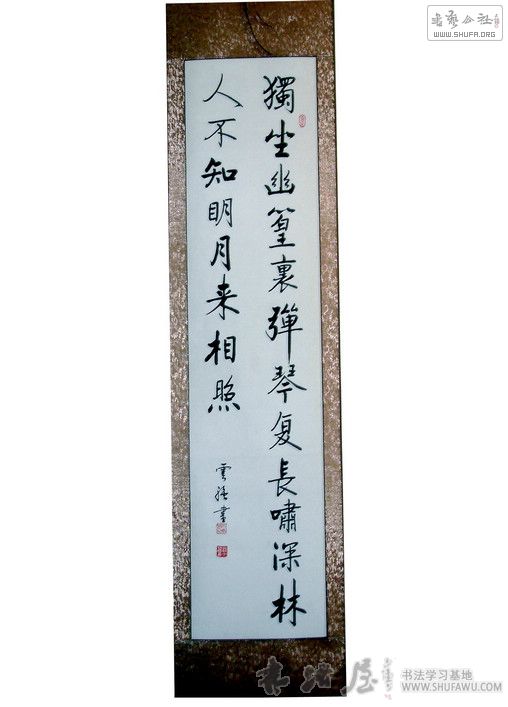 獨坐幽篁裏彈琴复長嘯深林
人不知明月来相照
雲
書
書藝公社
WWW.SHUFA.ORG
書法屋
书法学习基地
WWW.SHUFAWU.COM